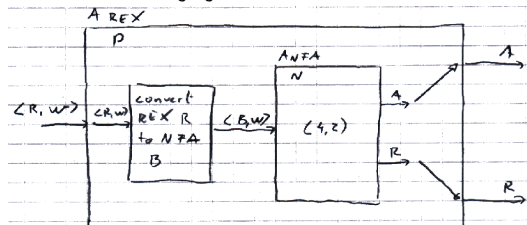 A REX
P
A NFA
N
A
⟨R, w⟩
⟨R, w⟩
convert
REX R
to NFA
B
⟨B, w⟩
A
R
R